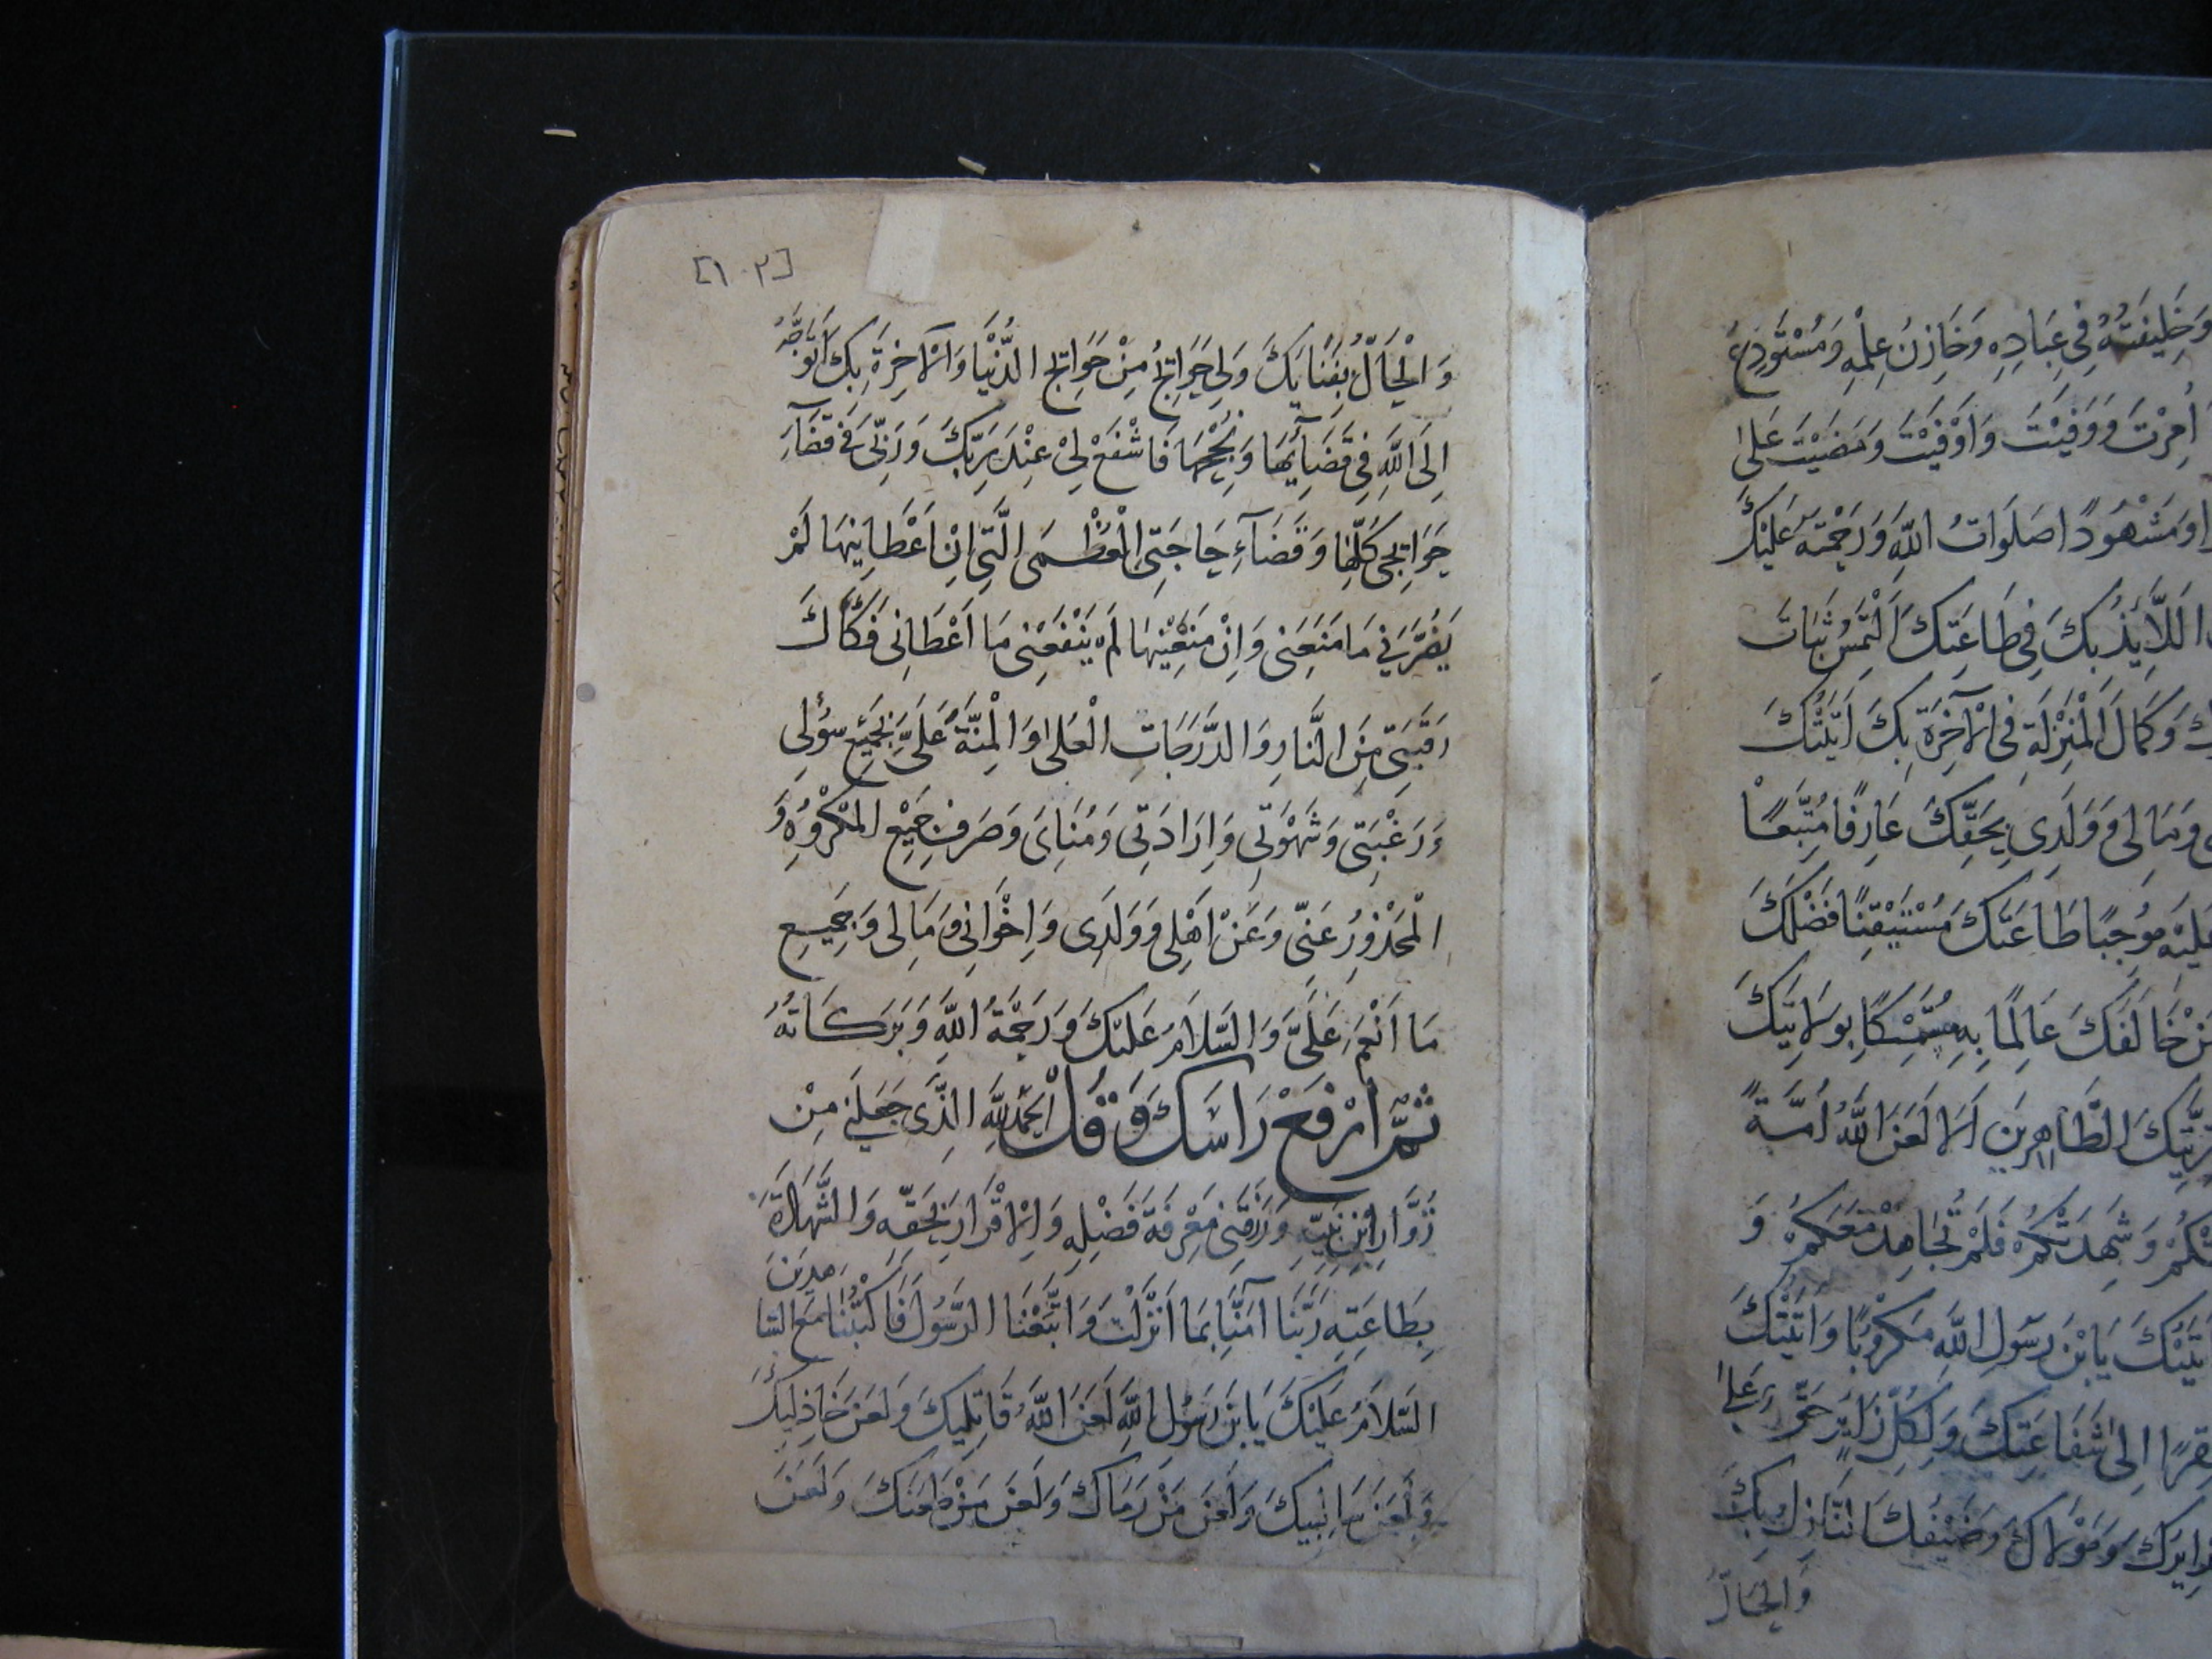 وَخَلِيفَتُهُ فِي عِبَادِهِ وَخَازِنُ عِلْمِهِ وَمُسْتَوْدِعُ
أُمِرْتَ وَوَفَيْتَ وَاَوْفَيْتَ وَمَضَيْتَ عَلىٰ
وَمَشْهُودًا صَلَوَاتُ اللهِ وَرَحْمَتُهُ عَلَيْكَ
اللَّايِذُ بِكَ فِي طَاعَتِكَ اَلْتَمِسُ ثَبَاتَ
وَكَمَالَ الْمَنْزِلَةِ فِى الْآخِرَةِ بِكَ اَتَيْتُكَ
وَمَالِى وَوَلَدِى بِحَقِّكَ عَارِفًا مُتَّبِعًا
مُوجِبًا طَاعَتَكَ مُسْتَيْقِنًا فَضْلَكَ
خَالَفَكَ عَالِمًا بِهِ مُتَمَسِّكًا بِوِلَايَتِكَ
الطَّاهِرِينَ اَلَا لَعَنَ اللهُ اُمَّةً
وَشَهِدَتْكُمْ فَلَمْ تُجَاهِدْ مَعَكُمْ وَ
اَتَيْتُكَ يَا بْنَ رَسُولِ اللهِ مَكْرُوبًا وَاَتَيْتُكَ
اِلىٰ شَفَاعَتِكَ وَلِكُلِّ زَايِرٍ حَقٌّ عَلىٰ
زَايِرُكَ وَمَوْلَاكَ وَضَيْفُكَ النَّازِلُ بِكَ
وَالْحَالُّ
[١٠٢]
وَالْحَالُّ بِفَنَايِكَ وَلِي حَوَايِجُ مِنْ حَوَايِجِ الدُّنْيَا وَالْآخِرَةِ بِكَ اَتَوَجَّهُ
اِلَى اللهِ فِي قَضَايِهَا وَنُجْحِهَا فَاشْفَعْ لِيْ عِنْدَ رَبِّكَ وَرَبِّى فِى قَضَآءِ
حَوَايِجِى كُلِّهَا وَقَضَآءِ حَاجَتِى الْعُظْمَى الَّتِى اِنْ اَعْطَانِيهَا لَمْ
يَضُرَّنِي مَا مَنَعَنِى وَاِنْ مَنَعَنِيْهَا لَمْ يَنْفَعْنِى مَا اَعْطَانِى فَكَاكَ
رَقَبَتِى مِنَ النَّارِ وَالدَّرَجَاتِ الْعُلىٰ وَالْمِنَّةَ عَلَىَّ بِجَمِيْعِ سُؤْلِى
وَرَغْبَتِى وَشَهْوَتِى وَاِرَادَتِى وَمُنَاىَ وَصَرْفِ جَمِيْعِ الْمَكْرُوهِ وَ
الْمَحْذُورِ عَنِّى وَعَنْ اَهْلِى وَوَلَدِى وَاِخْوَانِى وَمَالِى وَجَمِيعِ
مَا اَنْعَمَ عَلَىَّ وَالسَّلَامُ عَلَيْكَ وَرَحْمَةُ اللهِ وَبَرَكَاتُهُ
ثُمَّ ارْفَعْ رَاسَكَ وَقُلْ الْحَمْدُ لِلَّهِ الَّذِى جَعَلَنِى مِنْ
زُوَّارِ ابْنِ نَبِيِّهِ وَرَزَقَنِى مَعْرِفَةَ فَضْلِهِ وَالْاِقْرَارَ بِحَقِّهِ وَالشَّهَادَةَ
بِطَاعَتِهِ رَبَّنَا آمَنَّا بِمَا اَنْزَلْتَ وَاتَّبَعْنَا الرَّسُولَ فَاكْتُبْنَا مَعَ الشَّاهِدِينَ
السَّلَامُ عَلَيْكَ يَا بْنَ رَسُولِ اللهِ لَعَنَ اللهُ قَاتِلِيكَ وَلَعَنَ خَاذِلِيكَ
وَلَعَنَ سَالِبِيكَ وَلَعَنَ مَنْ رَمَاكَ وَلَعَنَ مَنْ طَعَنَكَ وَلَعَنَ